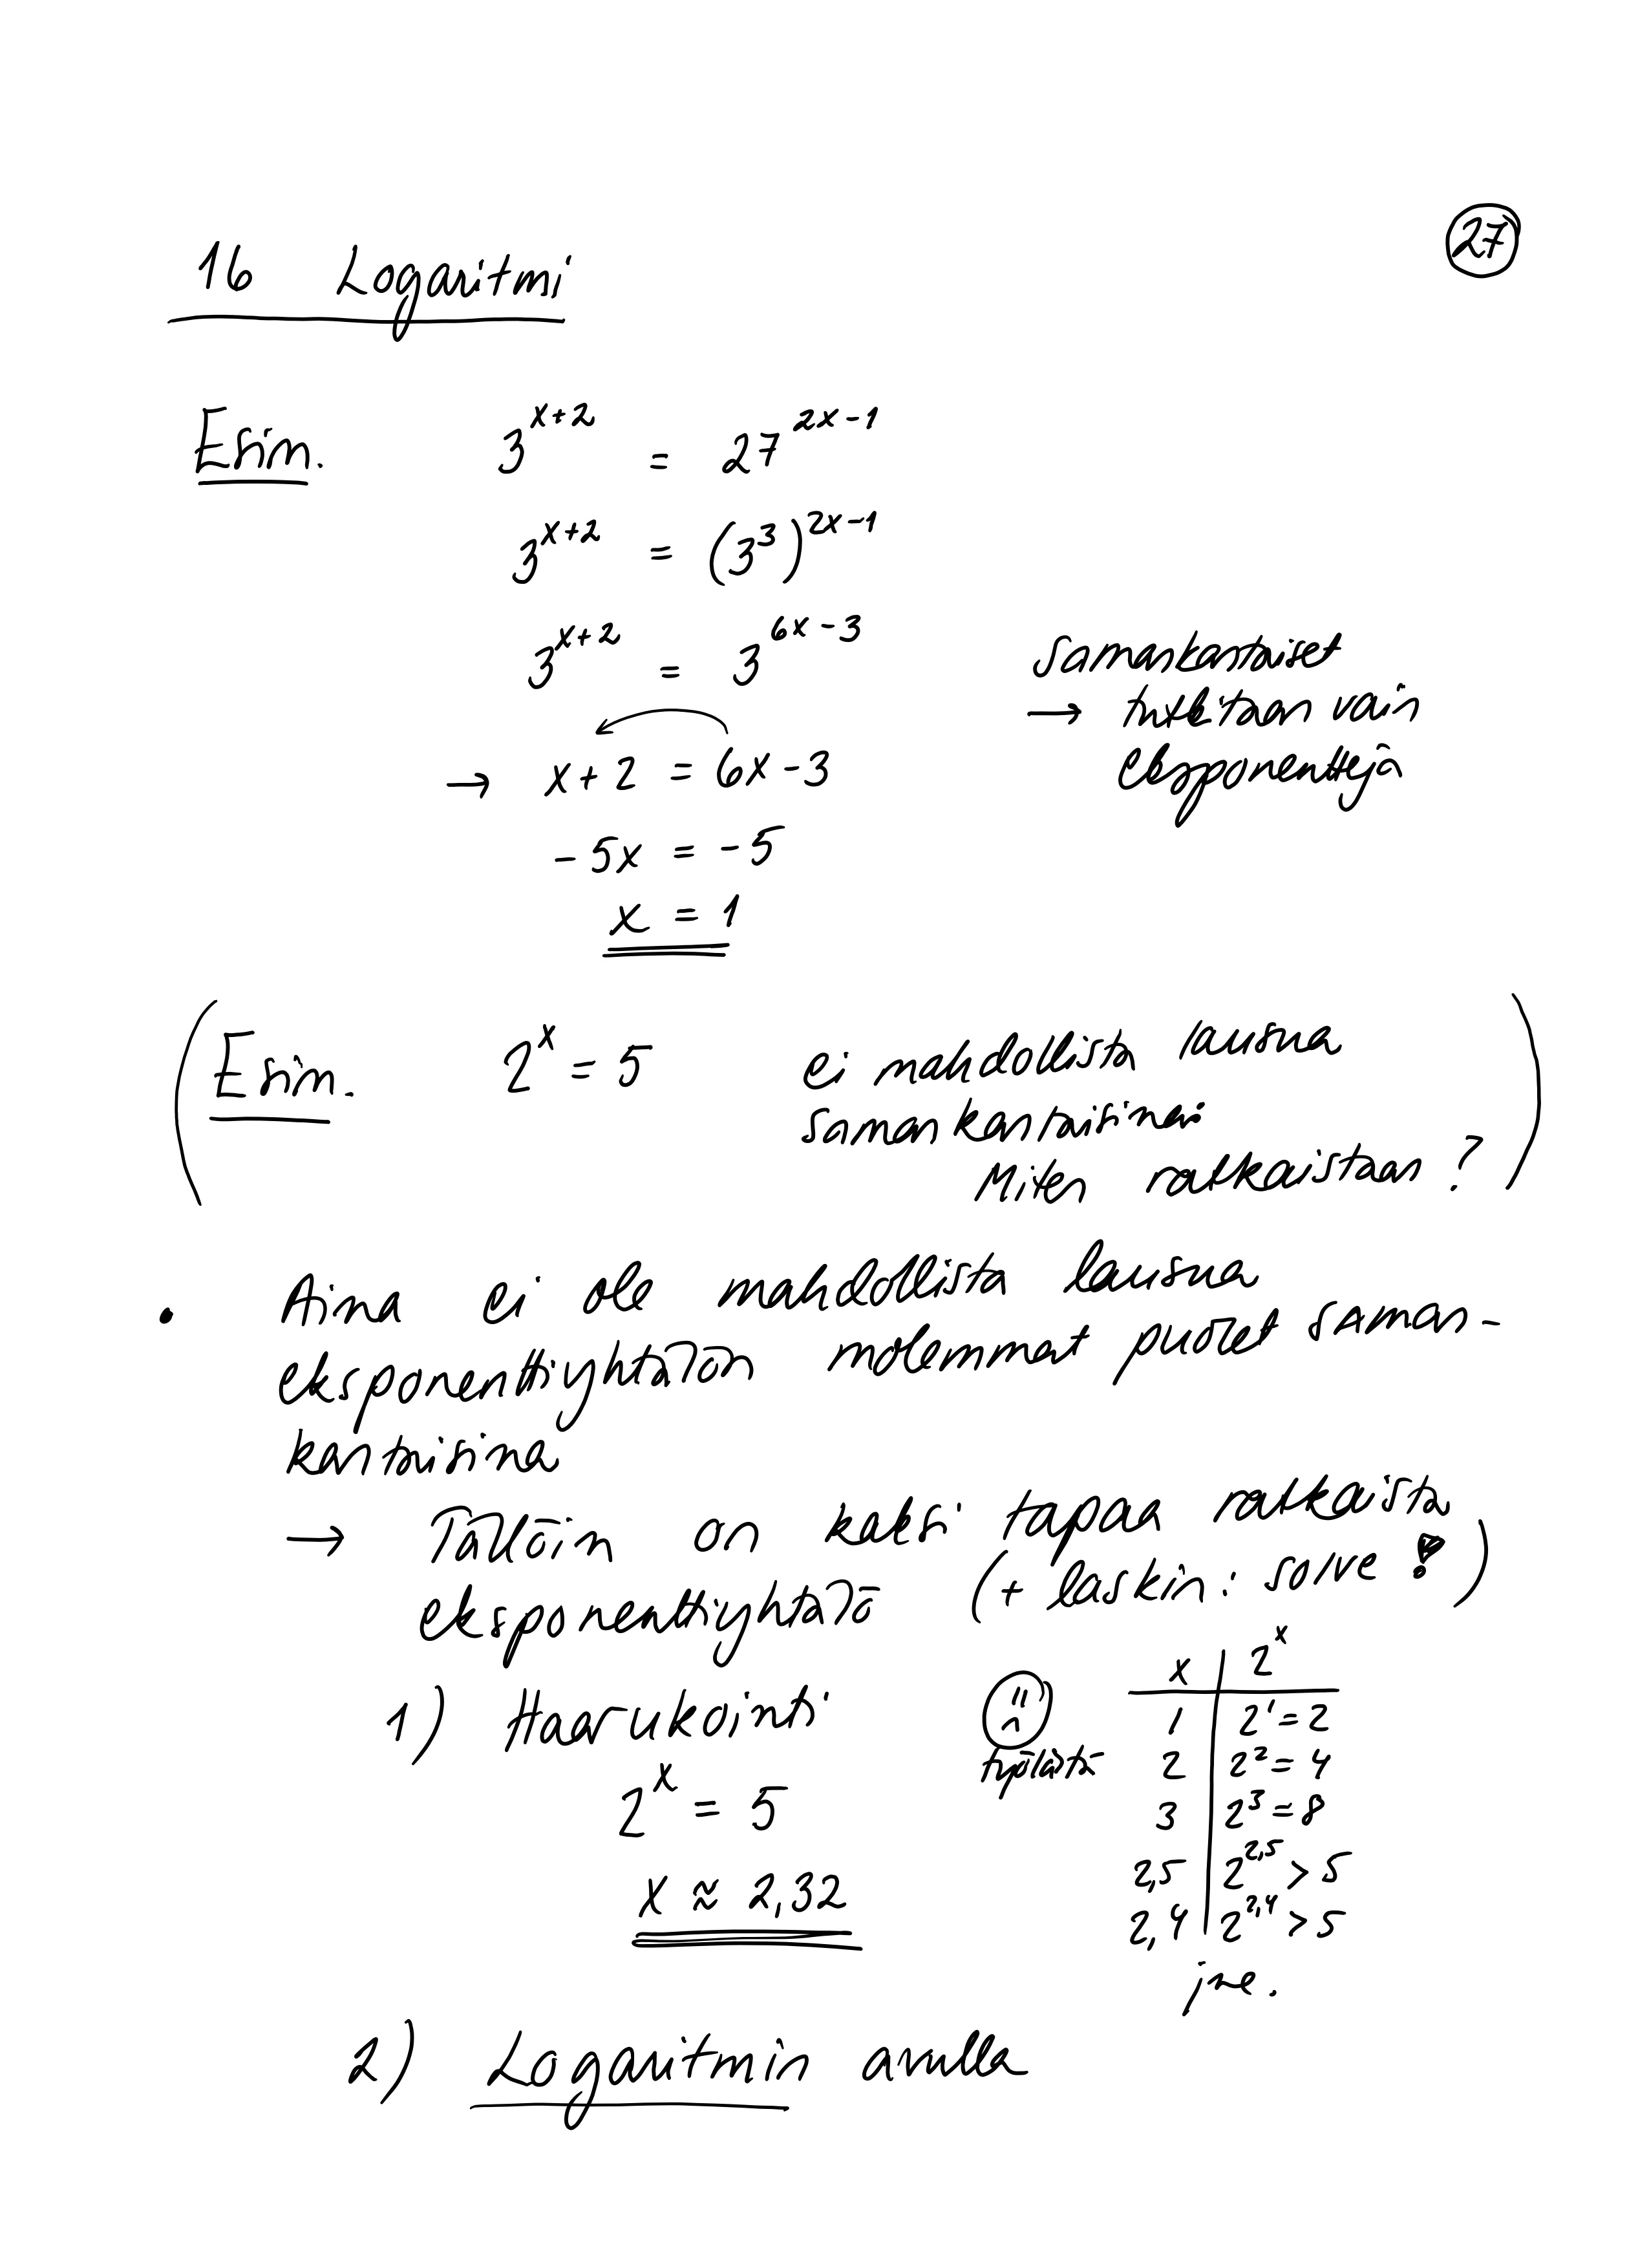 27
16 Logaritmi
Esim. 3^(x+2) = 27^(2x-1)
3^(x+2) = (3^3)^(2x-1)
3^(x+2) = 3^(6x-3)
samankantaiset
→ tutkitaan vain
eksponenttejä
→ x+2 = 6x-3
-5x = -5
x = 1
(Esim. 2^x = 5 ei mahdollista lausua
samankantaisina.
Miten ratkaistaan?)
• Aina ei ole mahdollista lausua
eksponenttiyhtälön molemmat puolet saman-
kantaisina
→ Tällöin on kaksi tapaa ratkaista
eksponenttiyhtälö (+ laskin: solve !)
1) Haarukointi
työlästä
2^x = 5
x ≈ 2,32
x | 2^x
1 | 2^1 = 2
2 | 2^2 = 4
3 | 2^3 = 8
2,5 | 2^2,5 > 5
2,4 | 2^2,4 > 5
jne.
2) Logaritmin avulla